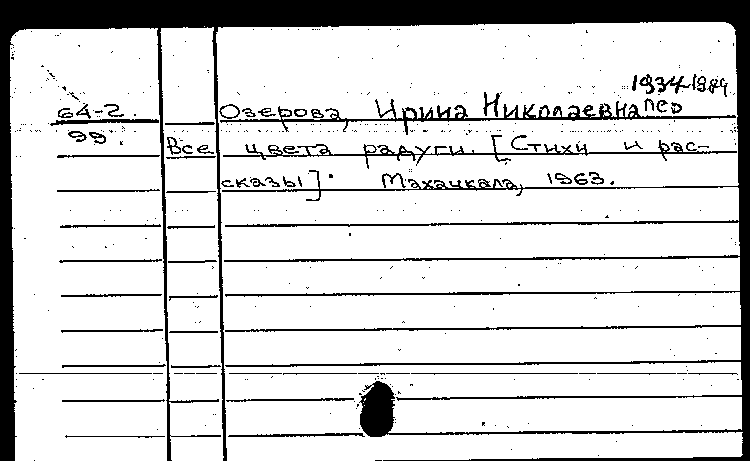 1934-1984
64-2. Озерова, Ирина Николаевна пер
99. Все цвета радуги. [Стихи и рас-
сказы]. Махачкала, 1963.